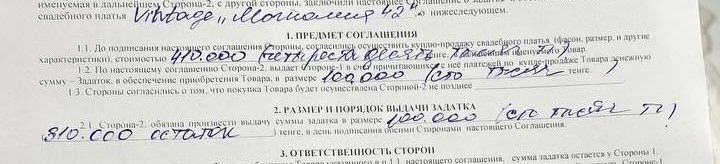 именуемая в дальнейшем Сторона-2, с другой стороны, заключили настоящее Соглашение о
свадебного платья Vintage „Магнолия 42" о нижеследующем.
1. ПРЕДМЕТ СОГЛАШЕНИЯ
1.1. До подписания настоящего соглашения Стороны согласились осуществить куплю-продажу свадебного платья (фасон, размер, и другие
характеристики), стоимостью 410.000 (четыреста десять тысяч тг) Товар.
1.2. По настоящему соглашению Сторона-2, выдает Стороне-1 в счет причитающихся с неё платежей по купле-продаже Товара денежную
сумму – Задаток, в обеспечение приобретения Товара, в размере 100,000 (сто тысяч ) тенге.
1.3. Стороны согласились о том, что покупка Товара будет осуществлена Стороной-2 не позднее
2. РАЗМЕР И ПОРЯДОК ВЫДАЧИ ЗАДАТКА
2.1. Сторона-2, обязана произвести выдачу суммы задатка в размере 100.000 (сто тысяч тг)
310.000 остаток ) тенге, в день подписания обеими Сторонами настоящего Соглашения.
3. ОТВЕТСТВЕННОСТЬ СТОРОН
Товара указанного в п.1.1. настоящего соглашения, сумма задатка остается у Стороны 1.